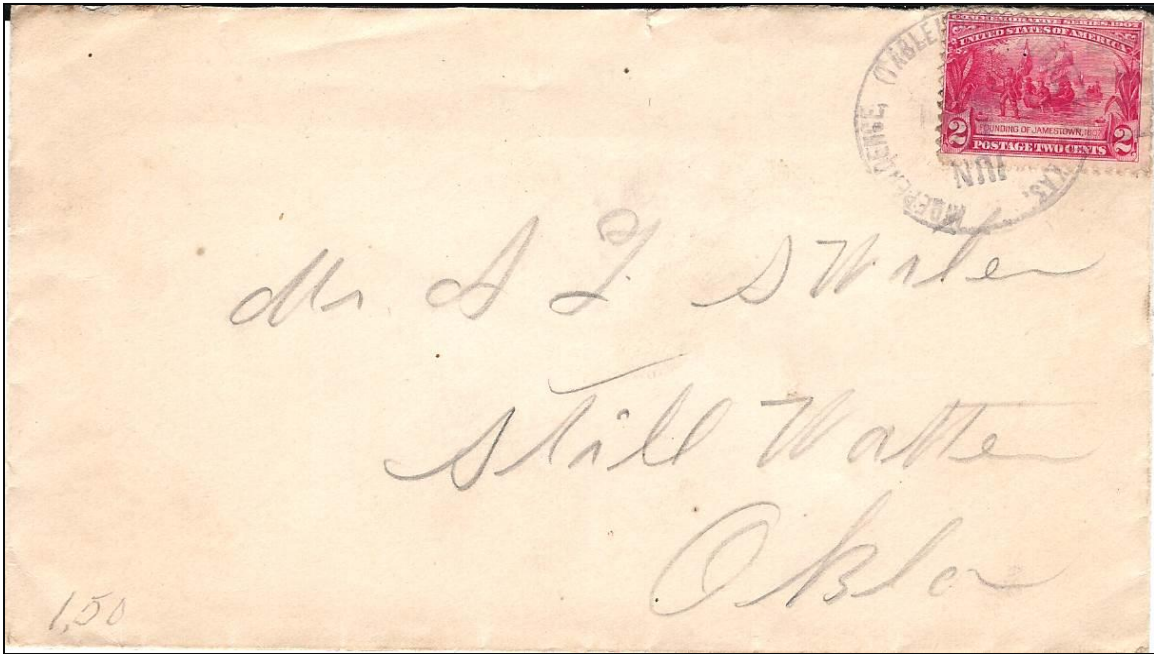 COMMEMORATIVE SERIES 1907
UNITED STATES OF AMERICA
FOUNDING OF JAMESTOWN, 1607
2 POSTAGE TWO CENTS 2
JUN
Mr. A
Still Watter
Okla
1,50